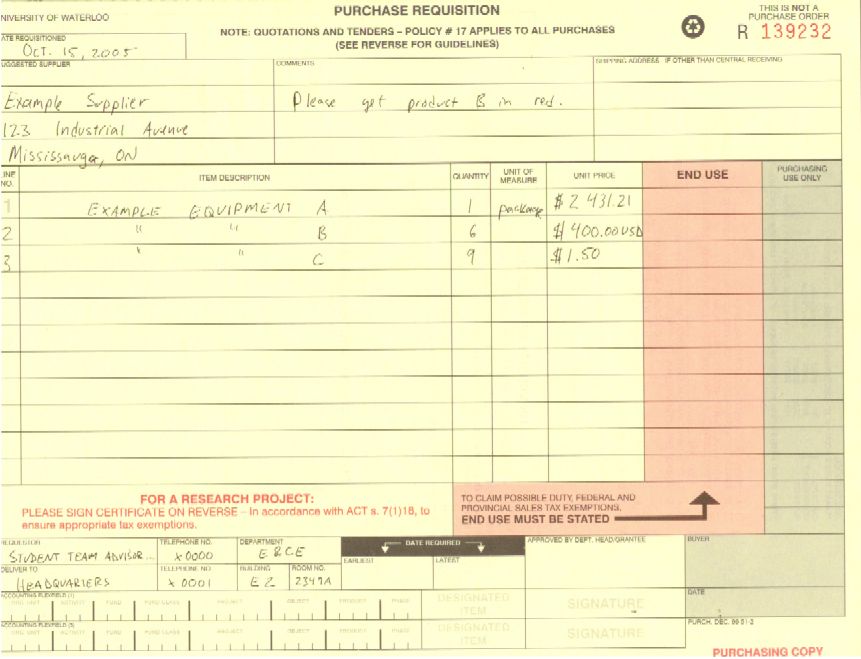 NIVERSITY OF WATERLOO
PURCHASE REQUISITION
THIS IS NOT A
PURCHASE ORDER
R 139232
NOTE: QUOTATIONS AND TENDERS – POLICY # 17 APPLIES TO ALL PURCHASES
(SEE REVERSE FOR GUIDELINES)
ATE REQUISITIONED
OCT. 15, 2005
UGGESTED SUPPLIER
COMMENTS
SHIPPING ADDRESS IF OTHER THAN CENTRAL RECEIVING
Example Supplier
Please get product B in red.
123 Industrial Avenue
Mississauga, ON
INE NO. ITEM DESCRIPTION QUANTITY UNIT OF MEASURE UNIT PRICE END USE PURCHASING USE ONLY
1 EXAMPLE EQUIPMENT A 1 package $2 431.21
2 " " B 6 $400.00 USD
3 " " C 9 $1.50
FOR A RESEARCH PROJECT:
PLEASE SIGN CERTIFICATE ON REVERSE – In accordance with ACT s. 7(1)18, to
ensure appropriate tax exemptions.
TO CLAIM POSSIBLE DUTY, FEDERAL AND
PROVINCIAL SALES TAX EXEMPTIONS,
END USE MUST BE STATED
REQUESTOR TELEPHONE NO. DEPARTMENT DATE REQUIRED APPROVED BY DEPT. HEAD/GRANTEE BUYER
STUDENT TEAM ADVISOR... x0000 E&CE
EARLIEST LATEST
DELIVER TO TELEPHONE NO. BUILDING ROOM NO.
HEADQUARTERS x 0001 E2 2349A
DATE
ACCOUNTING FLEXFIELD (1)
ACTIVITY FUND FUND CLASS PROJECT OBJECT PRODUCT PHASE
DESIGNATED ITEM
SIGNATURE
PURCH. DEC. 98 51-2
ACCOUNTING FLEXFIELD
ACTIVITY FUND FUND CLASS PROJECT OBJECT PRODUCT PHASE
DESIGNATED ITEM
SIGNATURE
PURCHASING COPY